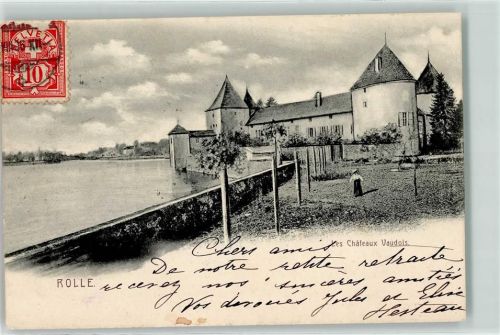 HELVETIA
10
Les Châteaux Vaudois.
ROLLE.
Chers amis
De notre petite retraite
recevez nos sincères amitiés
Vos dévoués Jules et Elise